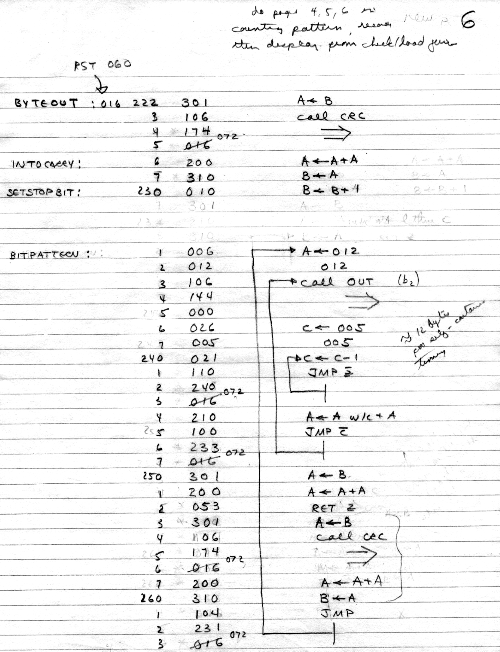 6
do pages 4, 5, 6 in
counting pattern,
then display from check/load
RST 060
BYTEOUT : 016 222 301 A ← B
3 106 call CRC
4 174 072
5 016
INTOCARRY: 6 200 A ← A+A
7 310 B ← A
SETSTOPBIT: 230 010 B ← B+1
BITPATTERN : 1 006 A ← 012
2 012 012
3 106 call OUT (b2)
4 144
5 000
6 026 C ← 005
7 005 005
240 021 C ← C-1
1 110 JMP Z̄
2 240 072
3 016
4 210 A ← A w/c + A
5 100 JMP C̄
6 233 072
7 016
250 301 A ← B
1 200 A ← A+A
2 053 RET Z
3 301 A ← B
4 106 call CRC
5 174 072
6 016
7 200 A ← A+A
260 310 B ← A
1 104 JMP
2 231 072
3 016
12 bytes
timing